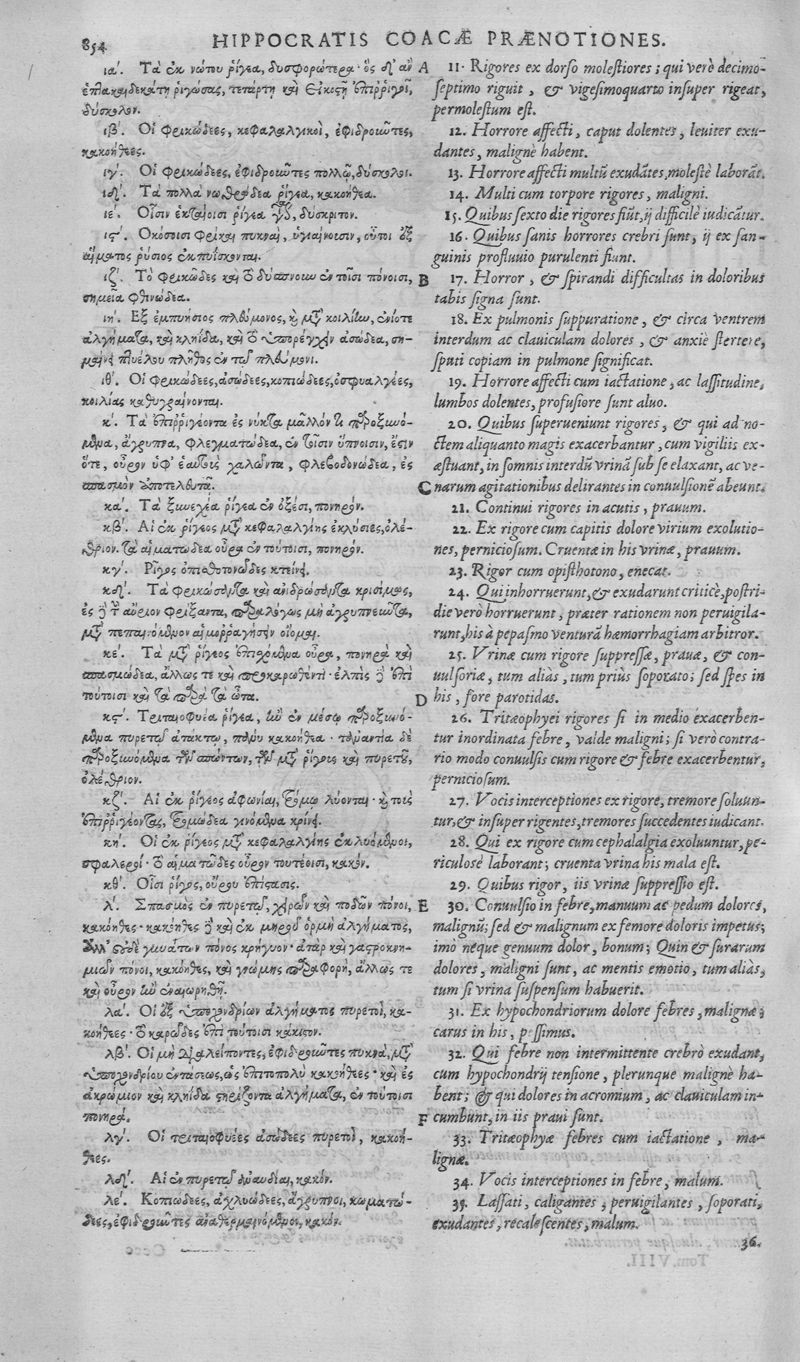 854 HIPPOCRATIS COACÆ PRÆNOTIONES.
ια΄. Τὰ ἐκ νώτου ῥίγεα, δυσφορώτερα· ὃς δ' ἂν
ἑπτακαιδεκάτῃ ῥιγώσας, τετάρτῃ καὶ εἰκοστῇ ἐπιρριγοῖ,
δύσκολον.
ιβ΄. Οἱ φρικώδεες, κεφαλαλγικοὶ, ἐφιδροῦντες,
κακοήθεες.
ιγ΄. Οἱ φρικώδεες, ἐφιδροῦντες πολλῷ, δύσκολοι.
ιδ΄. Τὰ πολλὰ νωθρώδεα ῥίγεα, κακοήθεα.
ιε΄. Οἷσιν ἑκταίοισι ῥίγεα γίνεται, δύσκριτον.
ις΄. Ὁκόσοισι φρῖκαι πυκναὶ, ὑγιαίνουσιν, οὗτοι ἐξ
αἵματος ῥύσιος ἐκπυΐσκονται.
ιζ΄. Τὸ φρικῶδες καὶ τὸ δύσπνοιον ἐν τοῖσι πόνοισι,
σημεῖα φθινώδεα.
ιη΄. Ἐξ ἐμπυήσιος πλεύμονος, καὶ μετὰ κοιλίην, ἐνίοτε
ἀλγήματα, καὶ κληῖδα, καὶ τὸ ὑπορέγχειν ἀσώδεα, ση-
μαίνει πτυέλου πλῆθος ἐν τῷ πλεύμονι.
ιθ΄. Οἱ φρικώδεες, ἀσώδεες, κοπιώδεες, ὀσφυαλγέες,
κοιλίας καθυγραίνονται.
κ΄. Τὰ ἐπιρριγέοντα ἐς νύκτα μᾶλλόν τι παροξυνό-
μενα, ἄγρυπνα, φλεγματώδεα, ἐν τοῖσιν ὕπνοισιν, ἔστιν
ὅτε, οὖρον ὑφ' ἑαυτοὺς χαλῶντα, φλεβοδονώδεα, ἐς
σπασμὸν ἀποτελευτᾷ.
κα΄. Τὰ ξυνεχέα ῥίγεα ἐν ὀξέσι, πονηρόν.
κβ΄. Αἱ ἐκ ῥίγεος μετὰ κεφαλαλγίης ἐκλύσιες, ὀλέ-
θριον. τὰ αἱματώδεα οὖρα ἐν τούτοισι, πονηρόν.
κγ΄. Ῥῖγος ὀπισθοτονῶδες κτείνει.
κδ΄. Τὰ φρικώσαντα καὶ ἀνιδρώσαντα κρισίμως,
ἐς δὲ τὴν αὔριον φρίξαντα, παραλόγως μὴ ἀγρυπνεῦντα,
μετὰ πεπαινόμενον αἱμορραγήσειν οἴομαι.
κε΄. Τὰ μετὰ ῥίγεος ἐπισχόμενα οὖρα, πονηρὰ καὶ
σπασμώδεα, ἄλλως τε καὶ προκαρωθέντι· ἐλπὶς δὲ ἐπὶ
τούτοισι καὶ τὰ παρὰ τὰ ὦτα.
κς΄. Τριταιοφυέα ῥίγεα, ἢν ἐν μέσῳ παροξυνό-
μενα πυρετῷ ἀτάκτῳ, πάνυ κακοήθεα· τἀναντία δὲ
παροξυνόμενα τῶν σπώντων, τῶν μετὰ ῥίγεος καὶ πυρετοῦ,
ὀλέθριον.
κζ΄. Αἱ ἐκ ῥίγεος ἀφωνίαι, τρόμῳ λύονται· καὶ τοὺς
ἐπιρριγέοντας, τρομώδεα γινόμενα κρίνει.
κη΄. Οἱ ἐκ ῥίγεος μετὰ κεφαλαλγίης ἐκλυόμενοι,
σφαλεροί· τὸ αἱματῶδες οὖρον τουτέοισι, κακόν.
κθ΄. Οἷσι ῥῖγος, οὔρου ἐπίστασις.
λ΄. Σπασμὸς ἐν πυρετῷ, χειρῶν καὶ ποδῶν πόνοι,
κακοήθες· κακοήθες δὲ καὶ ἐκ μηροῦ ὁρμὴ ἀλγήματος,
ἀλλ' οὐδὲ γουνάτων πόνος κρήγυον· ἀτὰρ καὶ γαστροκνη-
μιῶν πόνοι, κακοήθεες, καὶ γνώμης παραφορὴ, ἄλλως τε
καὶ οὖρον ἢν ἐναιωρηθῇ.
λα΄. Οἱ ἐξ ὑποχονδρίων ἀλγήματος πυρετοὶ, κα-
κοήθεες· τὸ καρῶδες ἐπὶ τούτοισι κάκιστον.
λβ΄. Οἱ μὴ διαλείποντες, ἐφιδροῦντες πυκνὰ, μετὰ
ὑποχονδρίου ἐντάσεως, ὡς ἐπιτοπολὺ κακοήθεες· καὶ ἐς
ἀκρώμιον καὶ κληῖδα στηρίζοντα ἀλγήματα, ἐν τούτοισι
πονηρά.
λγ΄. Οἱ τριταιοφυέες ἀσώδεες πυρετοὶ, κακοή-
θεες.
λδ΄. Αἱ ἐν πυρετῷ ἀναυδίαι, κακόν.
λε΄. Κοπιώδεες, ἀχλυώδεες, ἄγρυπνοι, κωματώ-
δεες, ἐφιδροῦντες ἀναθερμαινόμενοι, κακόν.
A 11. Rigores ex dorso molestiores; qui verò decimo-
septimo riguit, & vigesimoquarto insuper rigeat,
permolestum est.
12. Horrore affecti, caput dolentes, leuiter exu-
dantes, malignè habent.
13. Horrore affecti multũ exudãtes, molestè laborãt.
14. Multi cum torpore rigores, maligni.
15. Quibus sexto die rigores fiũt, ij difficilè iudicãtur.
16. Quibus sanis horrores crebri sunt, ij ex san-
guinis profluuio purulenti fiunt.
B 17. Horror, & spirandi difficultas in doloribus
tabis signa sunt.
18. Ex pulmonis suppuratione, & circa ventrem
interdum ac clauiculam dolores, & anxiè stertere,
sputi copiam in pulmone significat.
19. Horrore affecti cum iactatione, ac lassitudine,
lumbos dolentes, profusiore sunt aluo.
20. Quibus superueniunt rigores, & qui ad no-
ctem aliquanto magis exacerbantur, cum vigiliis ex-
æstuant, in somnis interdũ vrinã sub se elaxant, ac ve-
C narum agitationibus delirantes in conuulsionẽ abeunt.
21. Continui rigores in acutis, prauum.
22. Ex rigore cum capitis dolore virium exolutio-
nes, perniciosum. Cruentæ in his vrinæ, prauum.
23. Rigor cum opisthotono, enecat.
24. Qui inhorruerunt, & exudarunt criticè, postri-
die verò horruerunt, præter rationem non peruigila-
runt, his à pepasmo venturã hæmorrhagiam arbitror.
25. Vrinæ cum rigore suppressæ, prauæ, & con-
uulsoriæ, tum aliàs, tum priùs soporato; sed spes in
D his, fore parotidas.
26. Tritæophyei rigores si in medio exacerben-
tur inordinata febre, valde maligni; si verò contra-
rio modo conuulsis cum rigore & febre exacerbentur,
perniciosum.
27. Vocis interceptiones ex rigore, tremore soluun-
tur, & insuper rigentes, tremores succedentes iudicant.
28. Qui ex rigore cum cephalalgia exoluuntur, pe-
riculosè laborant; cruenta vrina his mala est.
29. Quibus rigor, iis vrinæ suppressio est.
E 30. Conuulsio in febre, manuum ac pedum dolores,
malignũ; sed & malignum ex femore doloris impetus;
imò neque genuum dolor, bonum; Quin & surarum
dolores, maligni sunt, ac mentis emotio, tum aliàs,
tum si vrina suspensum habuerit.
31. Ex hypochondriorum dolore febres, malignæ;
carus in his, pessimus.
32. Qui febre non intermittente crebrò exudant,
cum hypochondrij tensione, plerunque malignè ha-
bent; & qui dolores in acromium, ac clauiculam in-
F cumbunt, in iis praui sunt.
33. Tritæophyæ febres cum iactatione, ma-
lignæ.
34. Vocis interceptiones in febre, malum.
35. Lassati, caligantes, peruigilantes, soporati,
exudantes, recalescentes, malum.
36.
Tom. VIII.